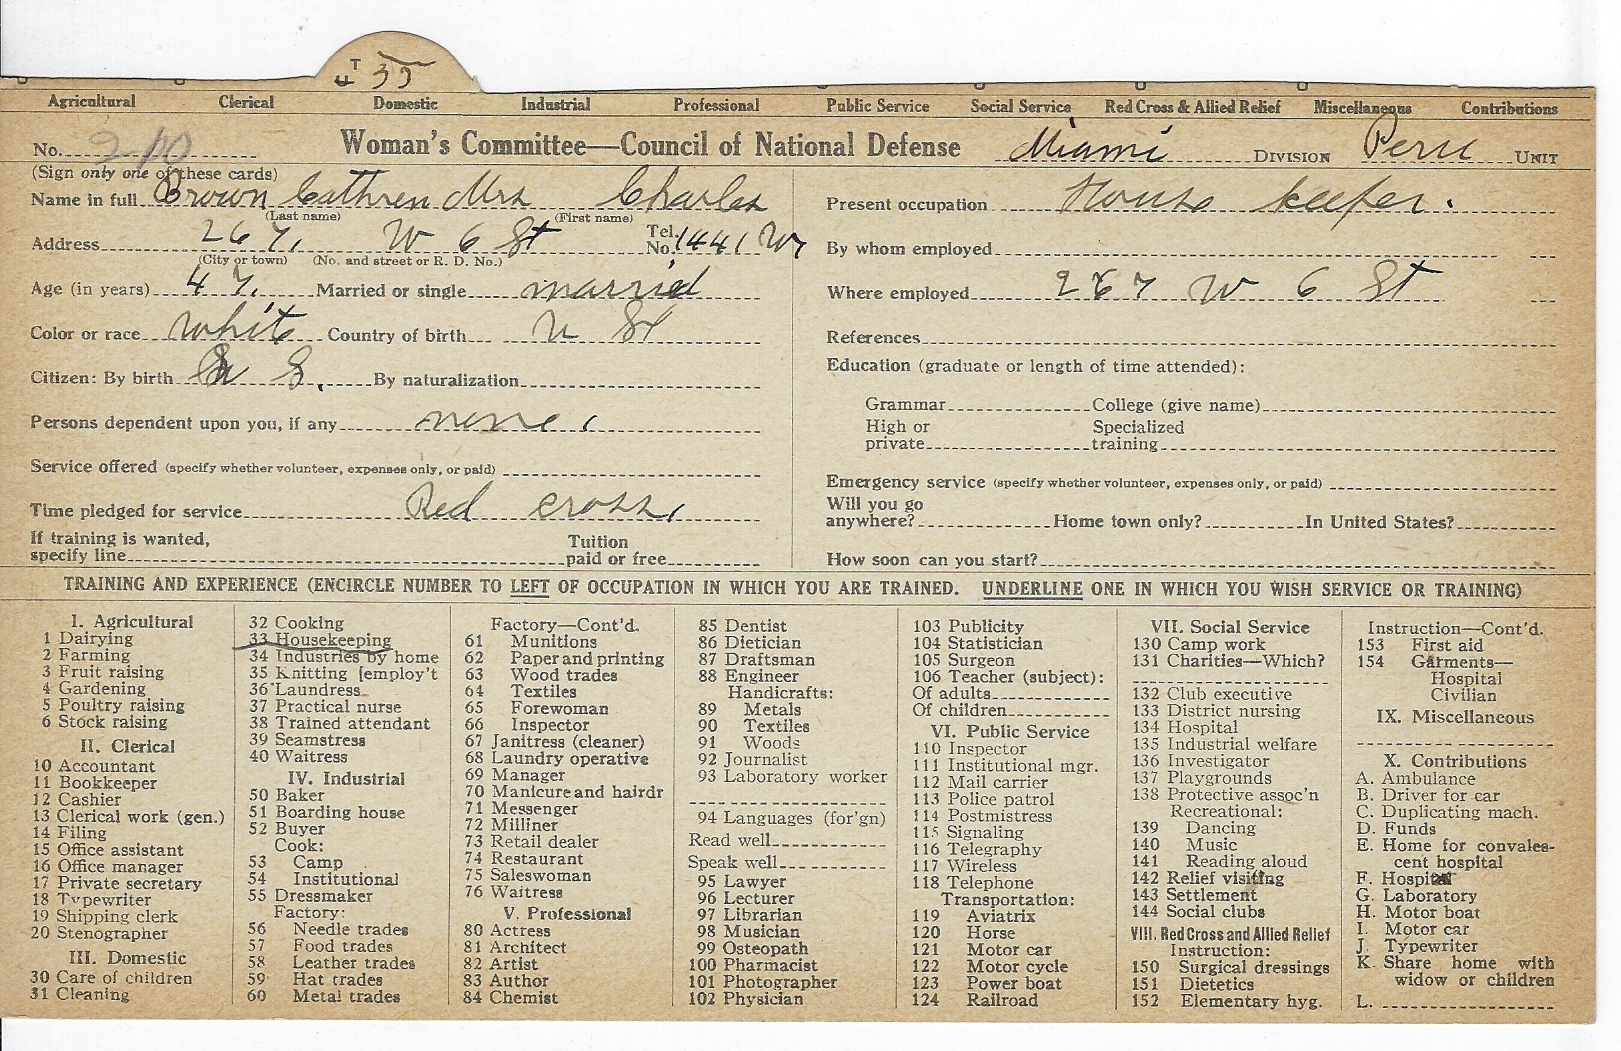 T
35
Agricultural Clerical Domestic Industrial Professional Public Service Social Service Red Cross & Allied Relief Miscellaneous Contributions
No. 210 Woman's Committee—Council of National Defense Miami DIVISION Peru UNIT
(Sign only one of these cards)
Name in full Brown Cathren Mrs Charles
(Last name) (First name)
Address 267, W 6 St Tel. No. 1441 W
(City or town) (No. and street or R. D. No.)
Age (in years) 47. Married or single married
Color or race White Country of birth U St
Citizen: By birth U S. By naturalization
Persons dependent upon you, if any none,
Service offered (specify whether volunteer, expenses only, or paid)
Time pledged for service Red cross,
If training is wanted, specify line Tuition paid or free
Present occupation House keeper.
By whom employed
Where employed 267 W 6 St
References
Education (graduate or length of time attended):
Grammar College (give name)
High or private Specialized training
Emergency service (specify whether volunteer, expenses only, or paid)
Will you go anywhere? Home town only? In United States?
How soon can you start?
TRAINING AND EXPERIENCE (ENCIRCLE NUMBER TO LEFT OF OCCUPATION IN WHICH YOU ARE TRAINED. UNDERLINE ONE IN WHICH YOU WISH SERVICE OR TRAINING)
I. Agricultural
1 Dairying
2 Farming
3 Fruit raising
4 Gardening
5 Poultry raising
6 Stock raising
II. Clerical
10 Accountant
11 Bookkeeper
12 Cashier
13 Clerical work (gen.)
14 Filing
15 Office assistant
16 Office manager
17 Private secretary
18 Typewriter
19 Shipping clerk
20 Stenographer
III. Domestic
30 Care of children
31 Cleaning
32 Cooking
33 Housekeeping
34 Industries by home
35 Knitting [employ't
36 Laundress
37 Practical nurse
38 Trained attendant
39 Seamstress
40 Waitress
IV. Industrial
50 Baker
51 Boarding house
52 Buyer
Cook:
53 Camp
54 Institutional
55 Dressmaker
Factory:
56 Needle trades
57 Food trades
58 Leather trades
59 Hat trades
60 Metal trades
Factory—Cont'd.
61 Munitions
62 Paper and printing
63 Wood trades
64 Textiles
65 Forewoman
66 Inspector
67 Janitress (cleaner)
68 Laundry operative
69 Manager
70 Manicure and hairdr
71 Messenger
72 Milliner
73 Retail dealer
74 Restaurant
75 Saleswoman
76 Waitress
V. Professional
80 Actress
81 Architect
82 Artist
83 Author
84 Chemist
85 Dentist
86 Dietician
87 Draftsman
88 Engineer
Handicrafts:
89 Metals
90 Textiles
91 Woods
92 Journalist
93 Laboratory worker
94 Languages (for'gn)
Read well
Speak well
95 Lawyer
96 Lecturer
97 Librarian
98 Musician
99 Osteopath
100 Pharmacist
101 Photographer
102 Physician
103 Publicity
104 Statistician
105 Surgeon
106 Teacher (subject):
Of adults
Of children
VI. Public Service
110 Inspector
111 Institutional mgr.
112 Mail carrier
113 Police patrol
114 Postmistress
115 Signaling
116 Telegraphy
117 Wireless
118 Telephone
Transportation:
119 Aviatrix
120 Horse
121 Motor car
122 Motor cycle
123 Power boat
124 Railroad
VII. Social Service
130 Camp work
131 Charities—Which?
132 Club executive
133 District nursing
134 Hospital
135 Industrial welfare
136 Investigator
137 Playgrounds
138 Protective assoc'n
Recreational:
139 Dancing
140 Music
141 Reading aloud
142 Relief visiting
143 Settlement
144 Social clubs
VIII. Red Cross and Allied Relief
Instruction:
150 Surgical dressings
151 Dietetics
152 Elementary hyg.
Instruction—Cont'd.
153 First aid
154 Garments—
Hospital
Civilian
IX. Miscellaneous
X. Contributions
A. Ambulance
B. Driver for car
C. Duplicating mach.
D. Funds
E. Home for convales-
cent hospital
F. Hospital
G. Laboratory
H. Motor boat
I. Motor car
J. Typewriter
K. Share home with
widow or children
L.